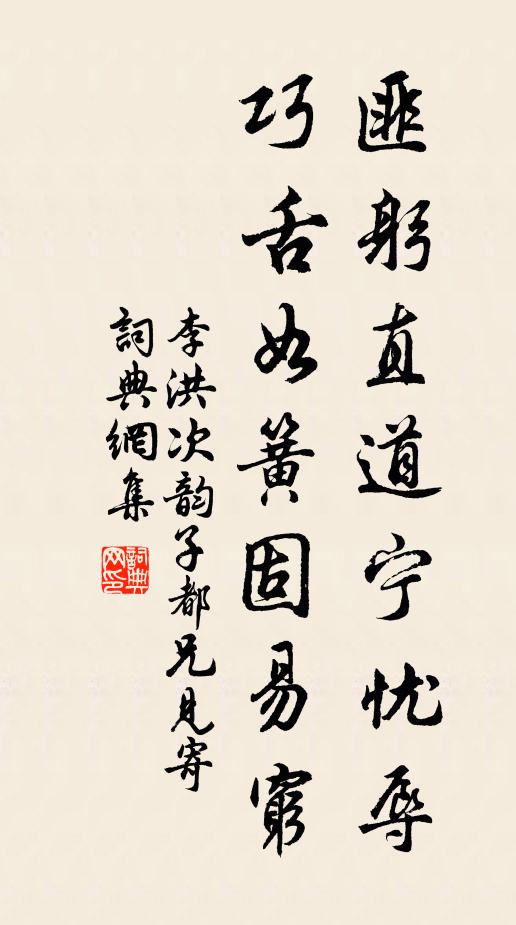 匪躬直道宁忧辱
巧舌如簧固易窮
李洪次韵子都兄見寄
詞典網集
詞典网印